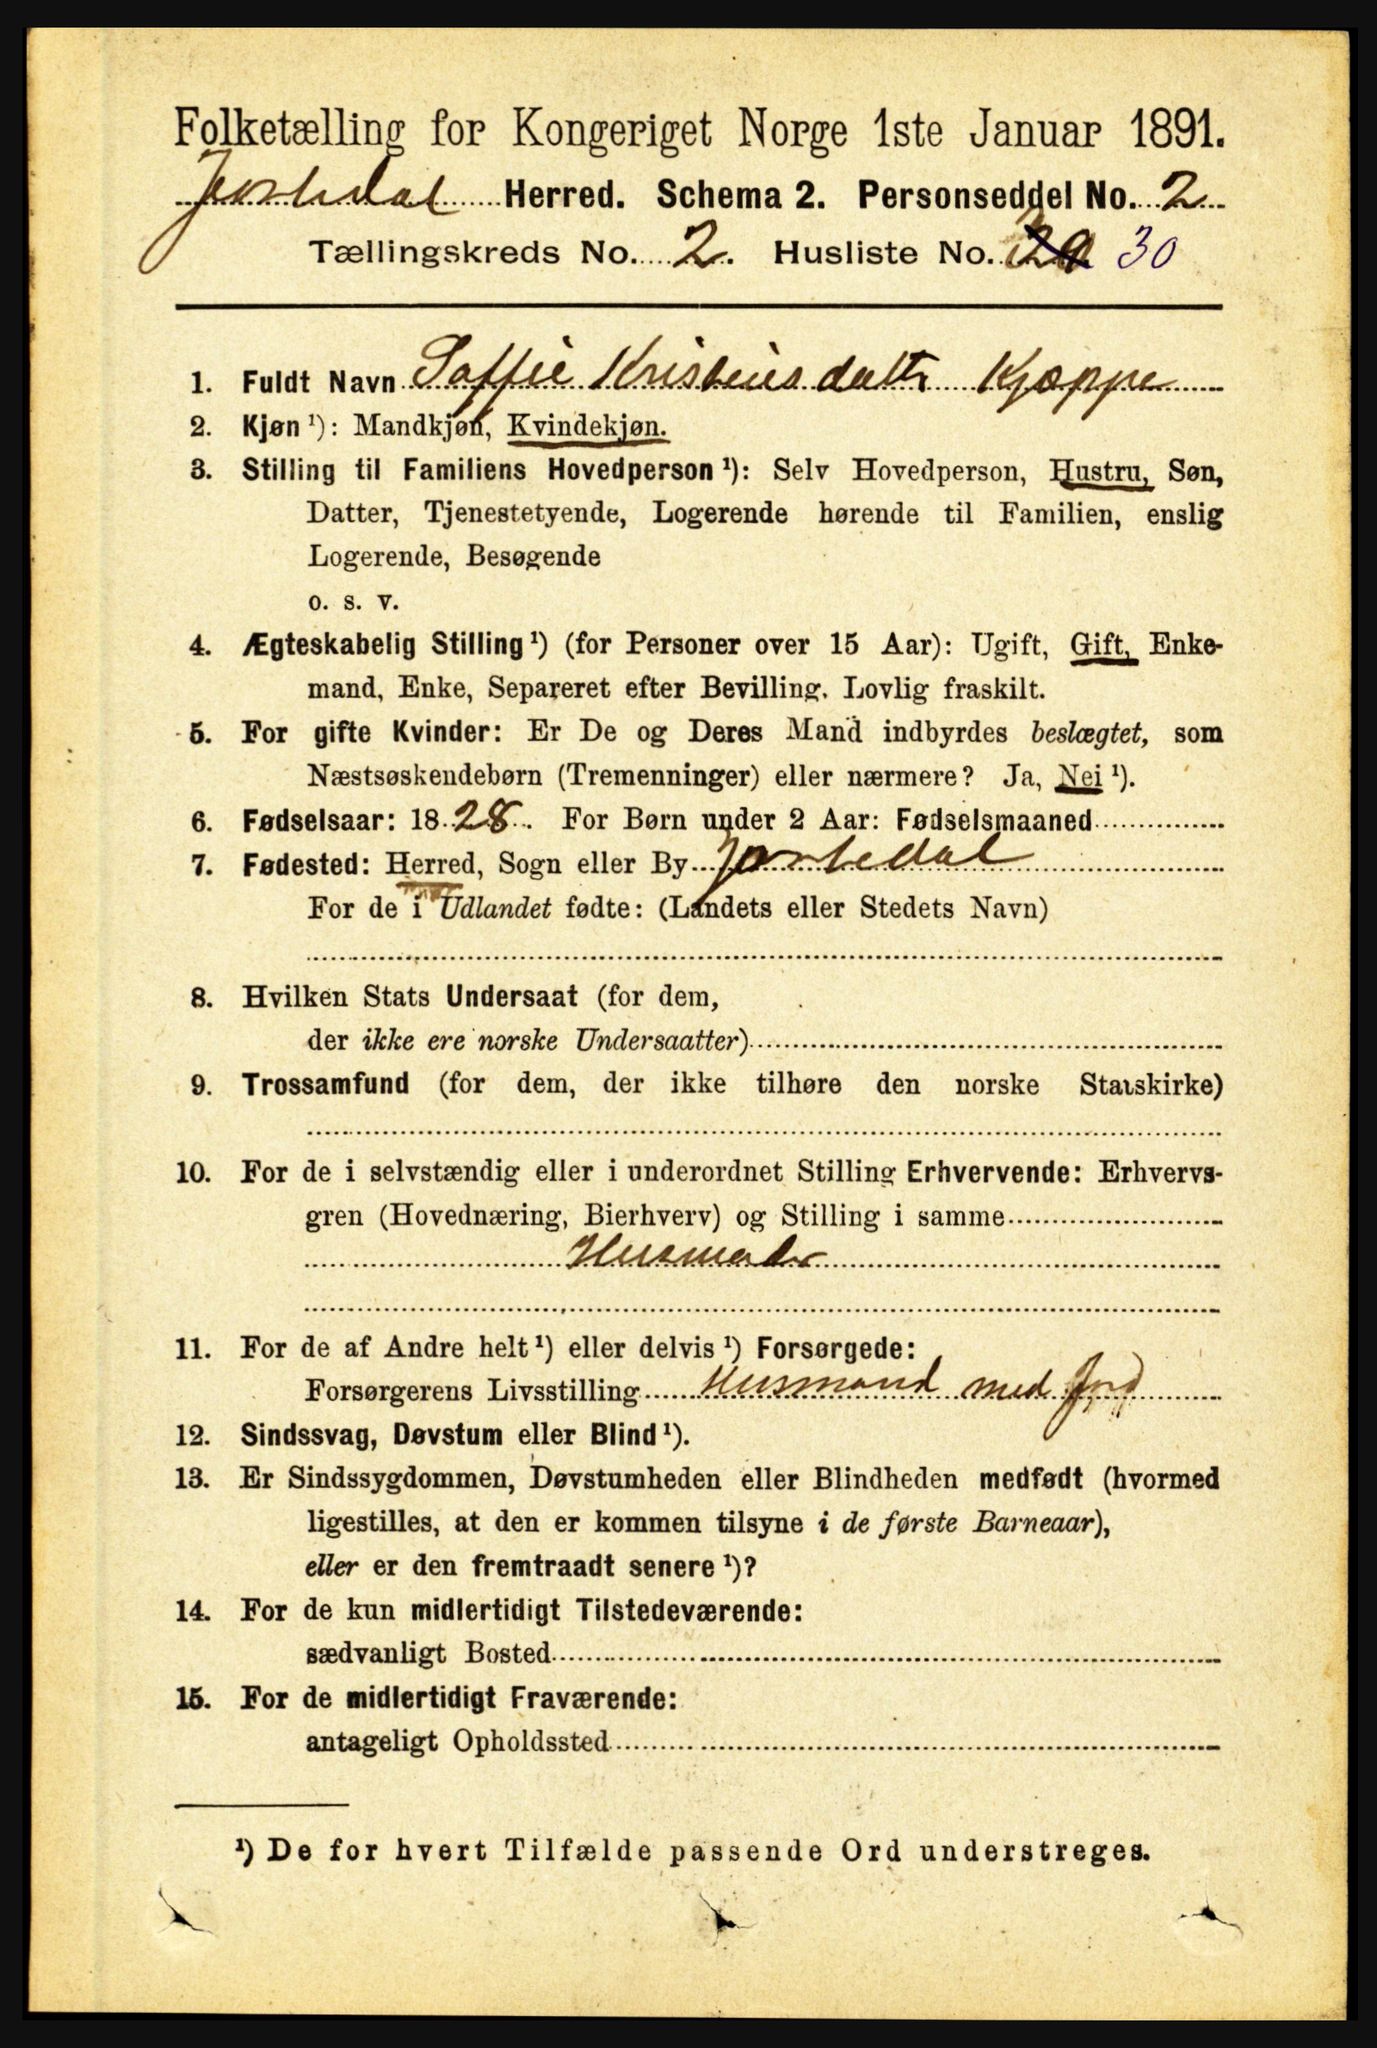 Folketælling for Kongeriget Norge 1ste Januar 1891.
Jostedal Herred. Schema 2. Personseddel No. 2
Tællingskreds No. 2. Husliste No. 29 30
1. Fuldt Navn Soffie Kristensdatt. Kjæppe
2. Kjøn ¹): Mandkjøn, Kvindekjøn.
3. Stilling til Familiens Hovedperson ¹): Selv Hovedperson, Hustru, Søn,
Datter, Tjenestetyende, Logerende hørende til Familien, enslig
Logerende, Besøgende
o. s. v.
4. Ægteskabelig Stilling ¹) (for Personer over 15 Aar): Ugift, Gift, Enke-
mand, Enke, Separeret efter Bevilling. Lovlig fraskilt.
5. For gifte Kvinder: Er De og Deres Mand indbyrdes beslægtet, som
Næstsøskendebørn (Tremenninger) eller nærmere? Ja, Nei ¹).
6. Fødselsaar: 1828. For Børn under 2 Aar: Fødselsmaaned
7. Fødested: Herred, Sogn eller By Jostedal
For de i Udlandet fødte: (Landets eller Stedets Navn)
8. Hvilken Stats Undersaat (for dem,
der ikke ere norske Undersaatter)
9. Trossamfund (for dem, der ikke tilhøre den norske Statskirke)
10. For de i selvstændig eller i underordnet Stilling Erhvervende: Erhvervs-
gren (Hovednæring, Bierhverv) og Stilling i samme
Husmoder
11. For de af Andre helt ¹) eller delvis ¹) Forsørgede:
Forsørgerens Livsstilling Husmand med Jord
12. Sindssvag, Døvstum eller Blind ¹).
13. Er Sindssygdommen, Døvstumheden eller Blindheden medfødt (hvormed
ligestilles, at den er kommen tilsyne i de første Barneaar),
eller er den fremtraadt senere ¹)?
14. For de kun midlertidigt Tilstedeværende:
sædvanligt Bosted
15. For de midlertidigt Fraværende:
antageligt Opholdssted
¹) De for hvert Tilfælde passende Ord understreges.